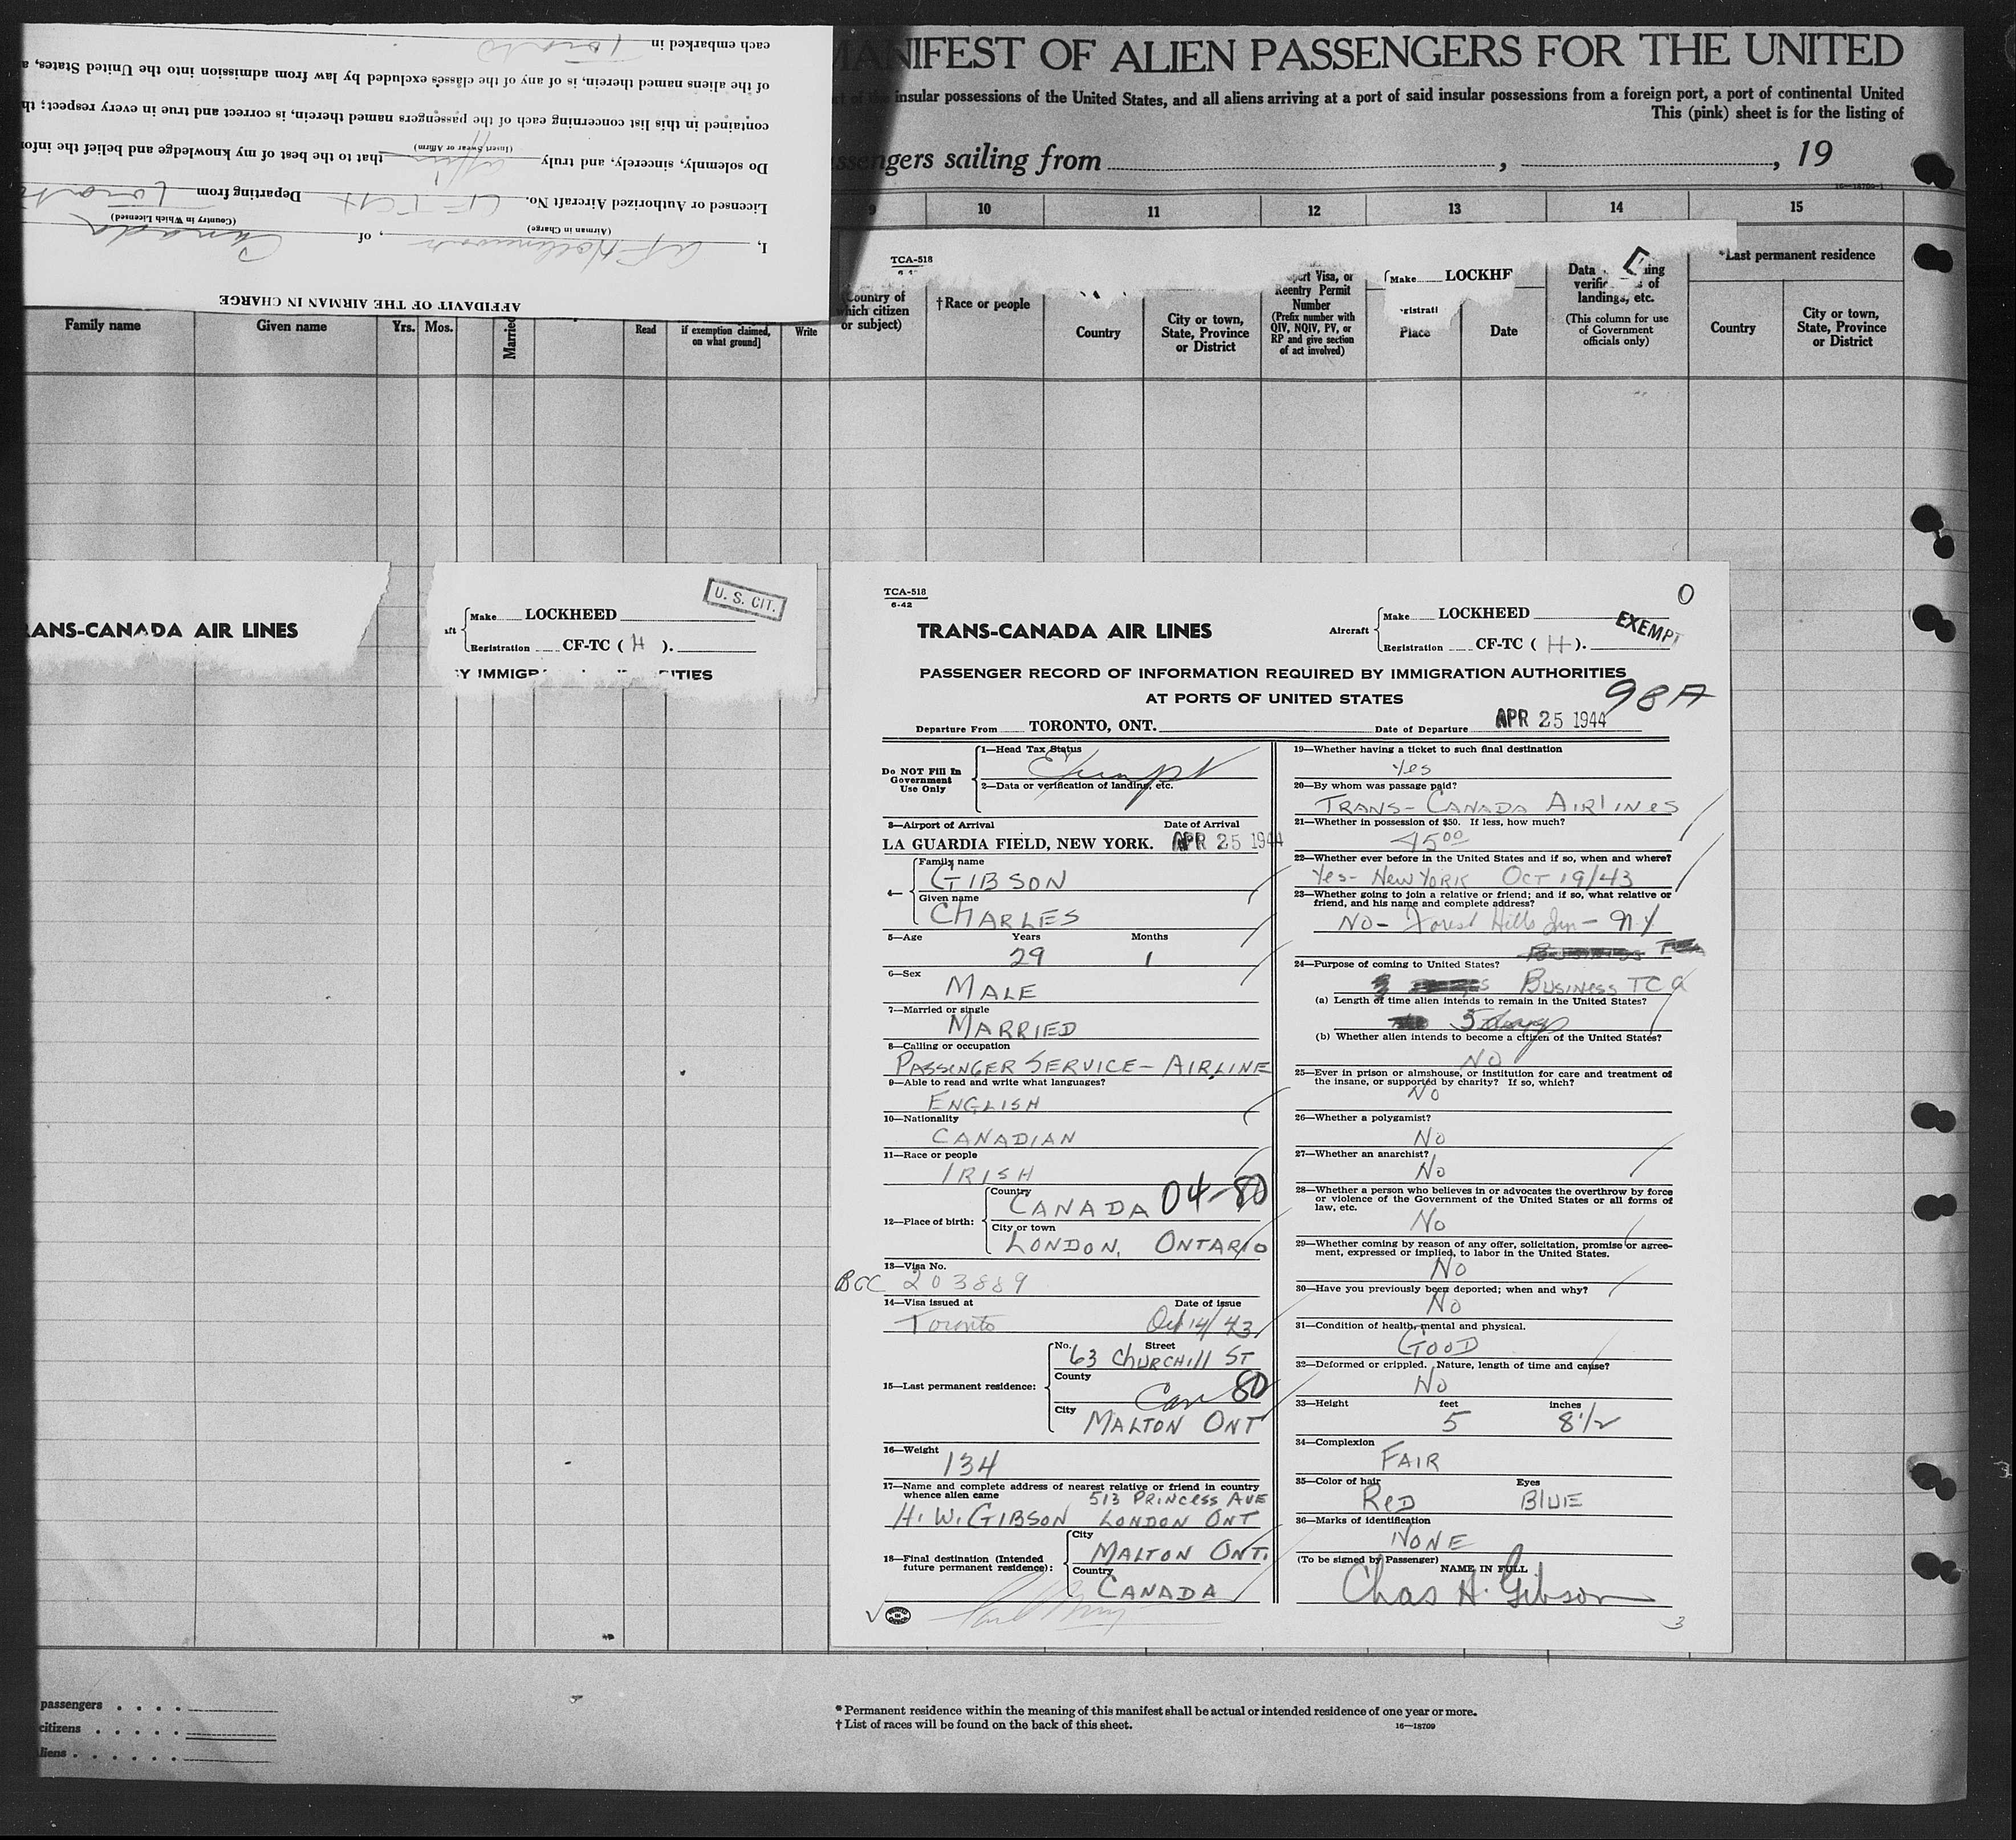 MANIFEST OF ALIEN PASSENGERS FOR THE UNITED
insular possessions of the United States, and all aliens arriving at a port of said insular possessions from a foreign port, a port of continental United
This (pink) sheet is for the listing of
ssengers sailing from , , 19
16—18709-1
9 10 11 12 13 14 15
AFFIDAVIT OF THE AIRMAN IN CHARGE
I, , of Canada
(Airman in Charge) (Country in Which Licensed)
Licensed or Authorized Aircraft No. CF-TCH Departing from Toronto
Do solemnly, sincerely, and truly affirm that to the best of my knowledge and belief the infor
(Insert Swear or Affirm)
contained in this list concerning each of the passengers named therein, is correct and true in every respect; th
of the aliens named therein, is of any of the classes excluded by law from admission into the United States, a
each embarked in Toronto
TCA-518
Make LOCKHE
Family name Given name Yrs. Mos. Married Read if exemption claimed, on what ground] Write
Country of which citizen or subject)
†Race or people
Country
City or town, State, Province or District
Visa, or Reentry Permit Number
(Prefix number with QIV, NQIV, PV, or RP and give section of act involved)
Place Date
Data landings, etc.
(This column for use of Government officials only)
*Last permanent residence
Country
City or town, State, Province or District
RANS-CANADA AIR LINES
Make LOCKHEED
U. S. CIT.
Registration CF-TC ( H ).
Y IMMIGR ITIES
TCA-518
6-42
0
TRANS-CANADA AIR LINES
Aircraft
Make LOCKHEED
Registration CF-TC ( H ).
EXEMPT
PASSENGER RECORD OF INFORMATION REQUIRED BY IMMIGRATION AUTHORITIES
AT PORTS OF UNITED STATES
98A
Departure From TORONTO, ONT. Date of Departure APR 25 1944
Do NOT Fill In Government Use Only
1—Head Tax Status
Exempt
2—Data or verification of landing, etc.
3—Airport of Arrival Date of Arrival
LA GUARDIA FIELD, NEW YORK. APR 25 1944
4—
Family name
GIBSON
Given name
CHARLES
5—Age Years Months
29 1
6—Sex
MALE
7—Married or single
MARRIED
8—Calling or occupation
PASSENGER SERVICE – AIRLINE
9—Able to read and write what languages?
ENGLISH
10—Nationality
CANADIAN
11—Race or people
IRISH
12—Place of birth:
Country
CANADA 04-80
City or town
LONDON, ONTARIO
13—Visa No.
BCC 203889
14—Visa issued at Date of issue
Toronto Oct 14/43
15—Last permanent residence:
No. Street
63 CHURCHILL ST
County
Can 80
City
MALTON ONT
16—Weight
134
17—Name and complete address of nearest relative or friend in country
whence alien came
513 PRINCESS AVE
H. W. GIBSON LONDON ONT
18—Final destination (Intended future permanent residence):
City
MALTON ONT.
Country
CANADA
19—Whether having a ticket to such final destination
Yes
20—By whom was passage paid?
TRANS-CANADA AIRLINES
21—Whether in possession of $50. If less, how much?
45 00
22—Whether ever before in the United States and if so, when and where?
Yes- NEW YORK OCT 19/43
23—Whether going to join a relative or friend; and if so, what relative or
friend, and his name and complete address?
NO- Forest Hills Inn - NY
24—Purpose of coming to United States?
BUSINESS TCA
(a) Length of time alien intends to remain in the United States?
5 days
(b) Whether alien intends to become a citizen of the United States?
NO
25—Ever in prison or almshouse, or institution for care and treatment of
the insane, or supported by charity? If so, which?
NO
26—Whether a polygamist?
No
27—Whether an anarchist?
No
28—Whether a person who believes in or advocates the overthrow by force
or violence of the Government of the United States or all forms of
law, etc.
No
29—Whether coming by reason of any offer, solicitation, promise or agree-
ment, expressed or implied, to labor in the United States.
No
30—Have you previously been deported; when and why?
No
31—Condition of health, mental and physical.
GOOD
32—Deformed or crippled. Nature, length of time and cause?
No
33—Height feet inches
5 8 1/2
34—Complexion
FAIR
35—Color of hair Eyes
RED BLUE
36—Marks of identification
NONE
(To be signed by Passenger)
NAME IN FULL
Chas H. Gibson
3
passengers
citizens
liens
* Permanent residence within the meaning of this manifest shall be actual or intended residence of one year or more.
† List of races will be found on the back of this sheet.
16—18709